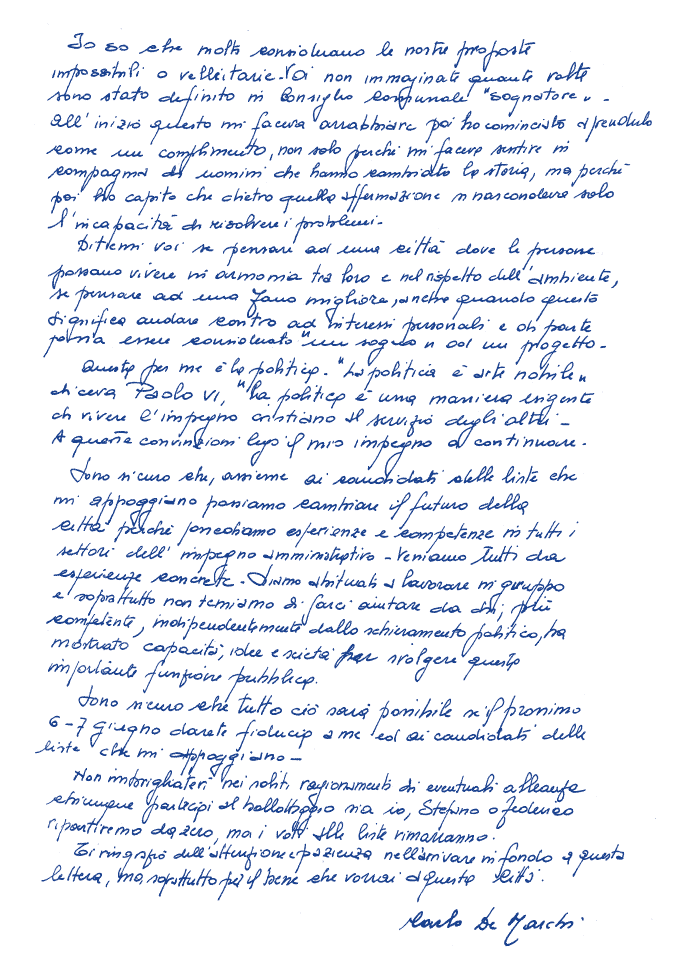 Io so che molti considerano le nostre proposte
impossibili o velleitarie. Voi non immaginate quante volte
sono stato definito in Consiglio Comunale "sognatore".
All'inizio questo mi faceva arrabbiare poi ho cominciato a prenderlo
come un complimento, non solo perché mi faceva sentire in
compagnia di uomini che hanno cambiato la storia, ma perché
poi ho capito che dietro quella affermazione si nascondeva solo
l'incapacità di risolvere i problemi.
Ditemi voi se pensare ad una città dove le persone
possano vivere in armonia tra loro e nel rispetto dell'ambiente,
se pensare ad una Fano migliore, anche quando questo
significa andare contro ad interessi personali e di parte
possa essere considerato "un sogno" od un progetto.
Questa per me è la politica. "La politica è arte nobile"
diceva Paolo VI, "la politica è una maniera esigente
di vivere l'impegno cristiano al servizio degli altri -
A queste convinzioni lego il mio impegno a continuare.
Sono sicuro che, assieme ai candidati delle liste che
mi appoggiano possiamo cambiare il futuro della
città perché possediamo esperienze e competenze in tutti i
settori dell'impegno amministrativo - Veniamo tutti da
esperienze concrete. Siamo abituati a lavorare in gruppo
e soprattutto non temiamo di farci aiutare da chi, più
competente, indipendentemente dallo schieramento politico, ha
mostrato capacità, idee e serietà per svolgere questa
importante funzione pubblica.
Sono sicuro che tutto ciò sarà possibile se il prossimo
6-7 giugno darete fiducia a me ed ai candidati delle
liste che mi appoggiano -
Non intorigliatevi nei soliti ragionamenti di eventuali alleanze
chiunque partecipi al ballottaggio sia io, Stefano o Federico
ripartiremo da zero, ma i voti alle liste rimarranno.
Ti ringrazio dell'attenzione e pazienza nell'arrivare in fondo a questa
lettera, ma soprattutto per il bene che vorrai a questa Città.
Carlo De Marchi